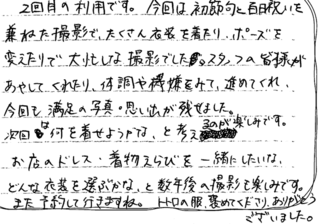 2回目の利用です。今回は初節句と百日祝いを
兼ねた撮影で、たくさん衣装を着たり、ポーズを
変えたりで大忙しな撮影でした。スタッフの皆様が
あやしてくれたり、体調や機嫌をみて、進めてくれ、
今回も満足の写真・思い出が残せました。
次回は何を着せようかな、と考えるのが楽しみです。
お店のドレス・着物えらびを一緒にしたいな、
どんな衣装を選ぶかな、と数年後の撮影も楽しみです。
また予約して行きますね。トトロの服、褒めてくださり、ありがとう
ございました。